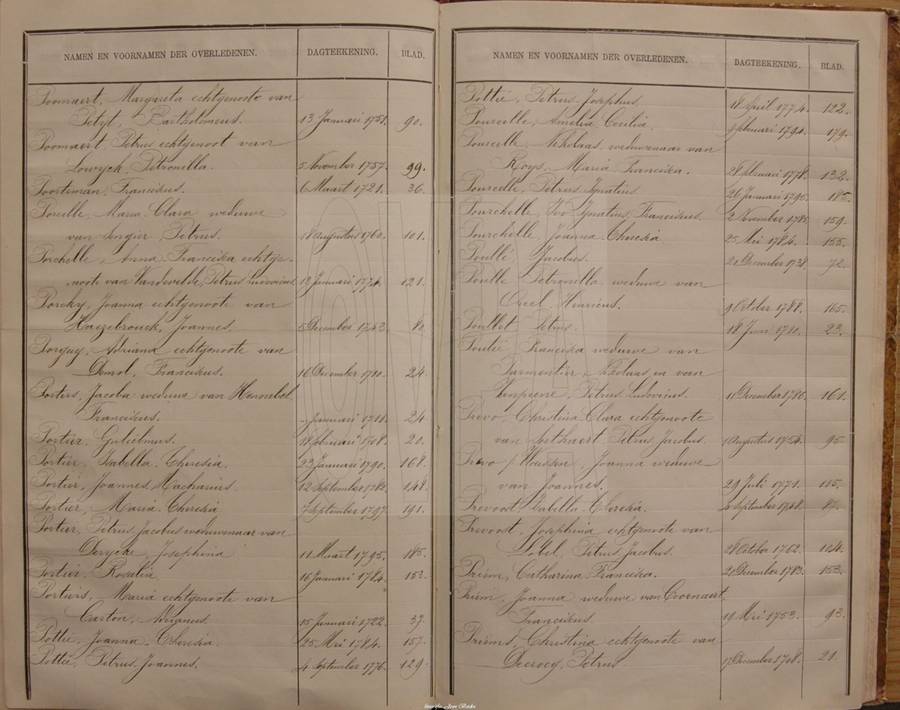 NAMEN EN VOORNAMEN DER OVERLEDENEN. DAGTEEKENING. BLAD.
Poomaert, Margareta echtgenoote van
Petyt, Bartholomeus. 13 Januari 1751. 90.
Poomaert Petrus echtgenoot van
Lowyck, Petronella. 5 November 1757. 99.
Poorteman, Franciskus. 6 Maart 1721. 36.
Poreille, Maria Clara weduwe
van Petrus. 18 Augustus 1760. 101.
Porchelle, Anna Francisca echtge-
noote van Vandevelde, Petrus 12 Januari 1774. 121.
Poreky, Joanna echtgenoote van
Haezebrouck, Joannes. 5 December 1743 80.
Porquy, Adriana echtgenoote van
Demol, Franciskus. 16 December 1710. 24
Portier, Jacoba weduwe van Hennebel
Franciskus. Januari 1711. 24
Portier, Gulielmus. Februari 1708. 20.
Portier, Isabella Theresia. 23 Januari 1790. 168.
Portier, Joannes Macharius. 12 September 1782. 148.
Portier, Maria Theresia 7 September 1797. 191.
Portier, Petrus Jacobus weduwenaar van
Derycke, Josephina 11 Maart 1795. 185.
Portier, Rosalia. 16 Januari 1784. 153.
Portiers, Maria echtgenoote van
Carton, Adrianus. 15 Januari 1722. 37.
Pottie, Joanna Theresia. 25 Mei 1784. 157.
Pottie, Petrus Joannes. 4 September 1776. 129.
NAMEN EN VOORNAMEN DER OVERLEDENEN. DAGTEEKENING. BLAD.
Pottie, Petrus Josephus. 18 April 1774. 122.
Pourcelle, Amelia Cecilia. Februari 1794. 179.
Pourcelle, Nikolaas, weduwenaar van
Roys, Maria Francisca. 28 Februari 1778. 132.
Pourcelle, Petrus Ignatius 26 Januari 1795. 185.
Pourchelle, Ivo Ignatius Franciscus. 2 November 1785. 159.
Pourchelle, Joanna Theresia 25 Mei 1784. 155.
Poullé Jacobus. 20 December 1738. 72.
Poulle Petronilla weduwe van
Creel Henricus. 9 October 1788. 165.
Poullet Petrus. 18 Juni 1710. 23.
Poutie Francisca weduwe van
Parmentier Nikolaas en van
Petrus Ludovicus. 11 December 1786. 161.
Prevo, Christina Clara echtgenoote
van Petrus Jacobus. 1 Augustus 1754. 95.
Prevo, Joanna weduwe
van Joannes. 29 Juli 1771. 115.
Prevoot Isabella Theresia. September 1748. 87.
Prevoost, Josephina echtgenoote van
Lobel, Petrus Jacobus. 28 October 1762. 104.
Priem, Catharina Francisca. 21 December 1783. 153.
Priem, Joanna weduwe van Coornaert
Franciskus. 19 Mei 1753. 93.
Priems, Christina echtgenoote van
Petrus 17 December 1708. 21.